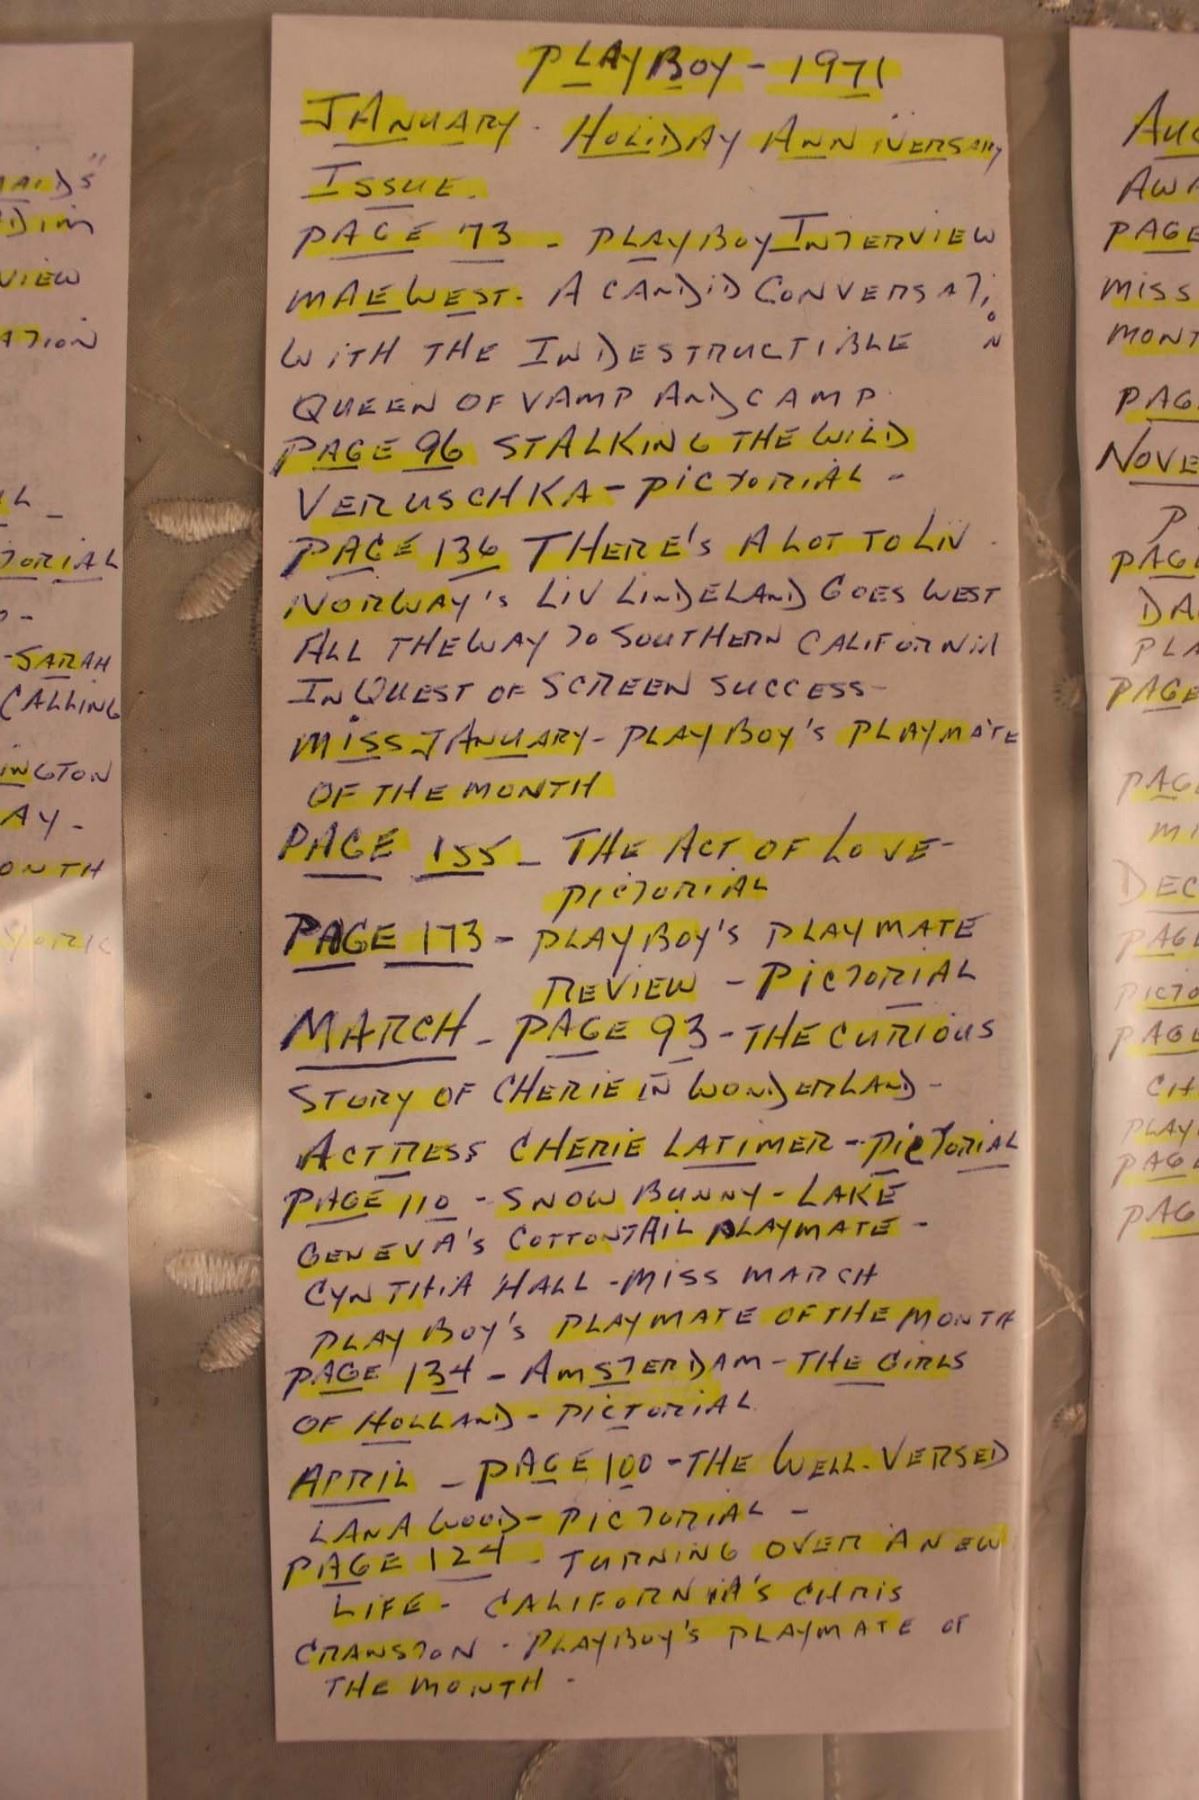 PLAYBOY - 1971
JANUARY. HOLIDAY ANNIVERSARY
ISSUE.
PAGE 73 - PLAYBOY INTERVIEW
MAE WEST. A CANDID CONVERSATION
WITH THE INDESTRUCTIBLE
QUEEN OF VAMP AND CAMP.
PAGE 96 STALKING THE WILD
VERUSCHKA - PICTORIAL -
PAGE 136 THERE'S A LOT TO LIV -
NORWAY'S LIV LINDELAND GOES WEST
ALL THE WAY TO SOUTHERN CALIFORNIA
IN QUEST OF SCREEN SUCCESS -
MISS JANUARY - PLAYBOY'S PLAYMATE
OF THE MONTH
PAGE 155 - THE ACT OF LOVE -
PICTORIAL
PAGE 173 - PLAYBOY'S PLAYMATE
REVIEW - PICTORIAL
MARCH - PAGE 93 - THE CURIOUS
STORY OF CHERIE IN WONDERLAND -
ACTRESS CHERIE LATIMER - PICTORIAL
PAGE 110 - SNOW BUNNY - LAKE
GENEVA'S COTTONTAIL PLAYMATE -
CYNTHIA HALL - MISS MARCH
PLAYBOY'S PLAYMATE OF THE MONTH
PAGE 134 - AMSTERDAM - THE GIRLS
OF HOLLAND - PICTORIAL
APRIL - PAGE 100 - THE WELL-VERSED
LANA WOOD - PICTORIAL -
PAGE 124 - TURNING OVER A NEW
LIFE - CALIFORNIA'S CHRIS
CRANSTON - PLAYBOY'S PLAYMATE OF
THE MONTH -
VIEW
- SARAH
CALLING
AY -
MISS
PAGE
PAGE
PLAY